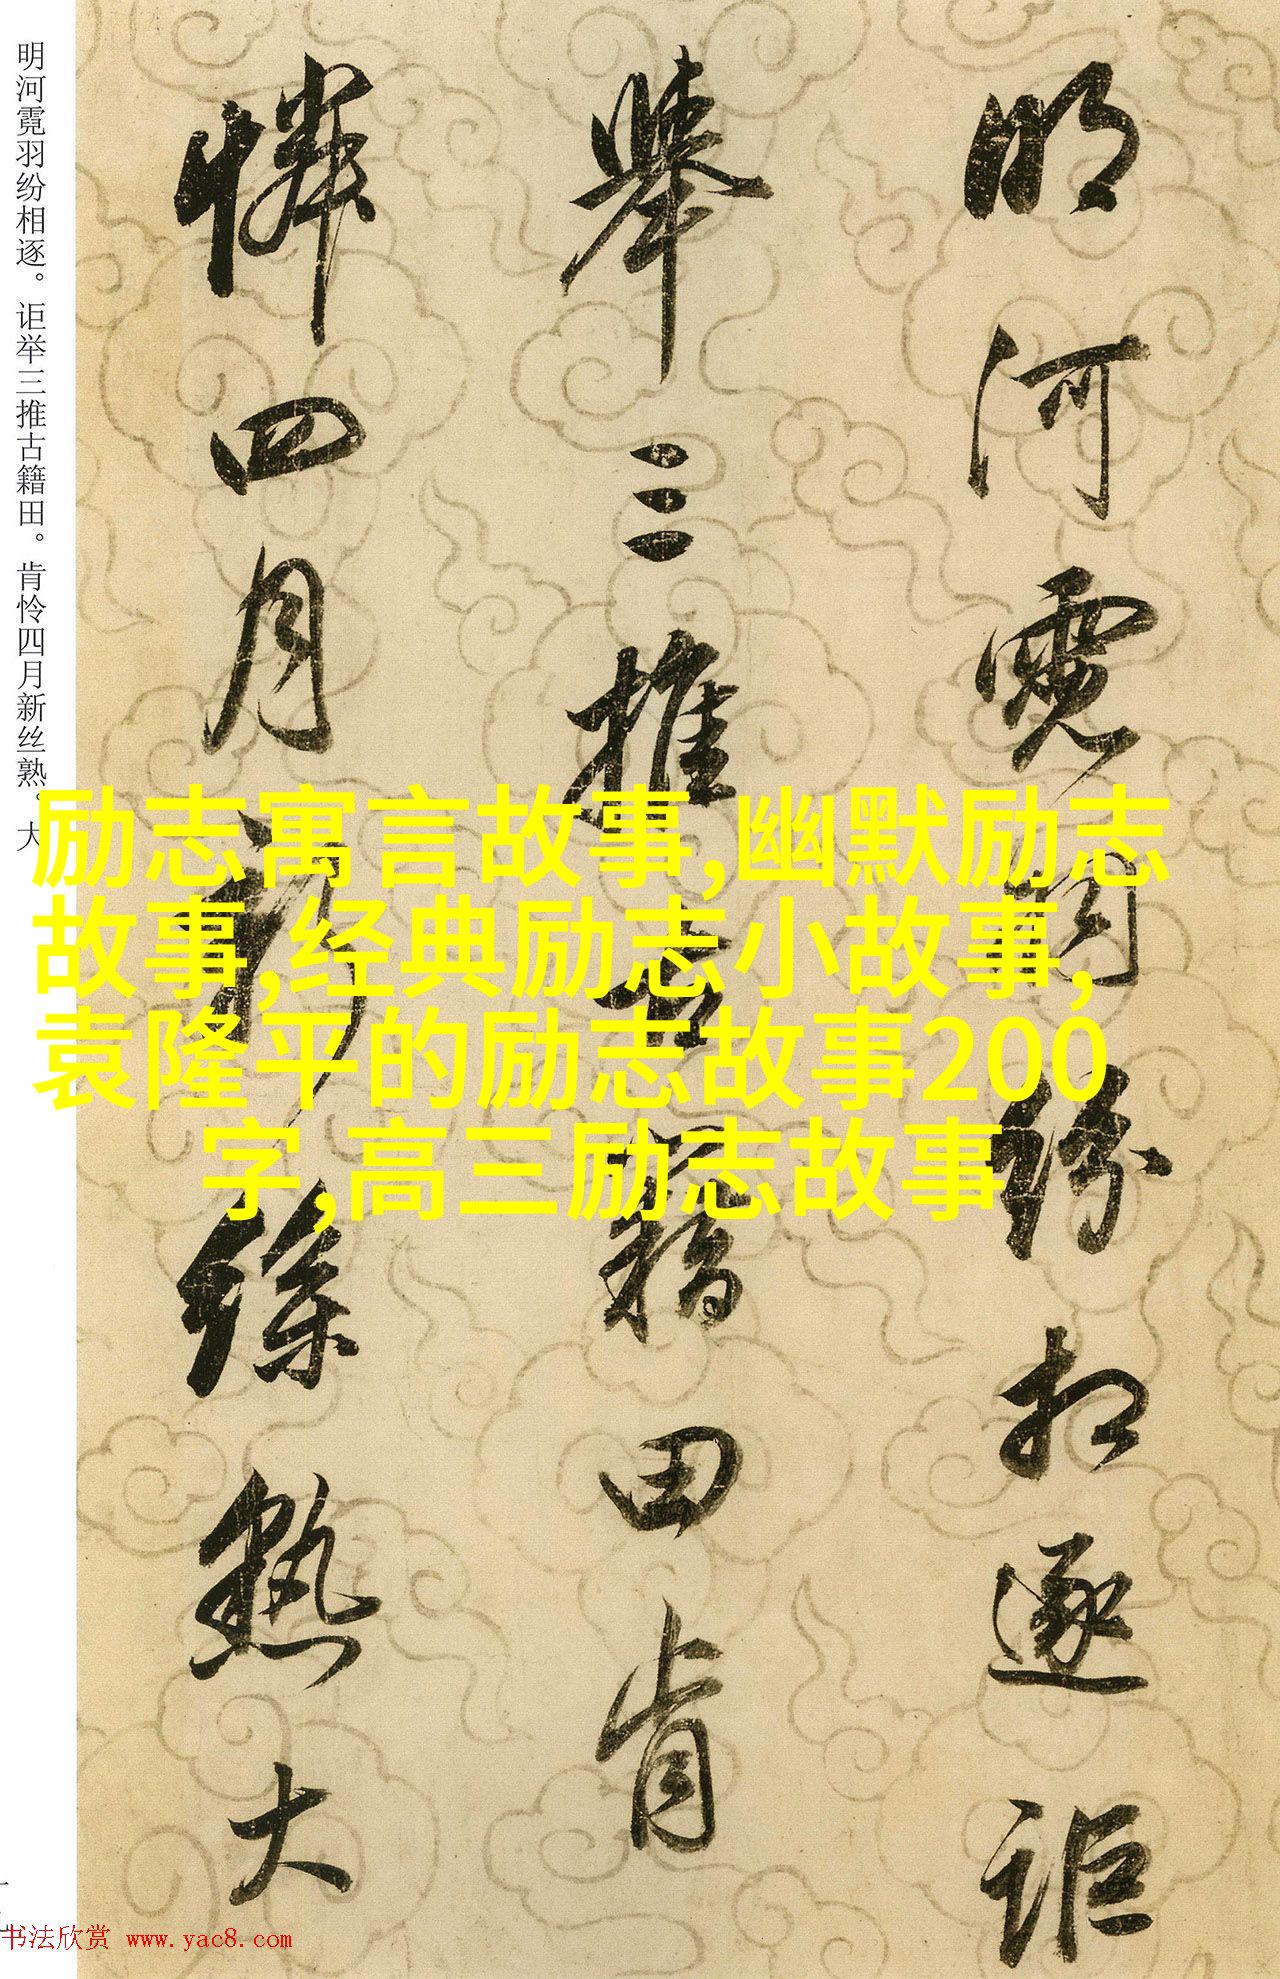 明河霓羽纷相逐。讵举三推古籍田。肯怜四月新丝熟。大
明河霓羽紛相逐詎
舉三推古籍田肯
憐四月新絲熟大
励志寓言故事,幽默励志
故事,经典励志小故事,
袁隆平的励志故事200
字,高三励志故事
书法欣赏 www.yac8.com